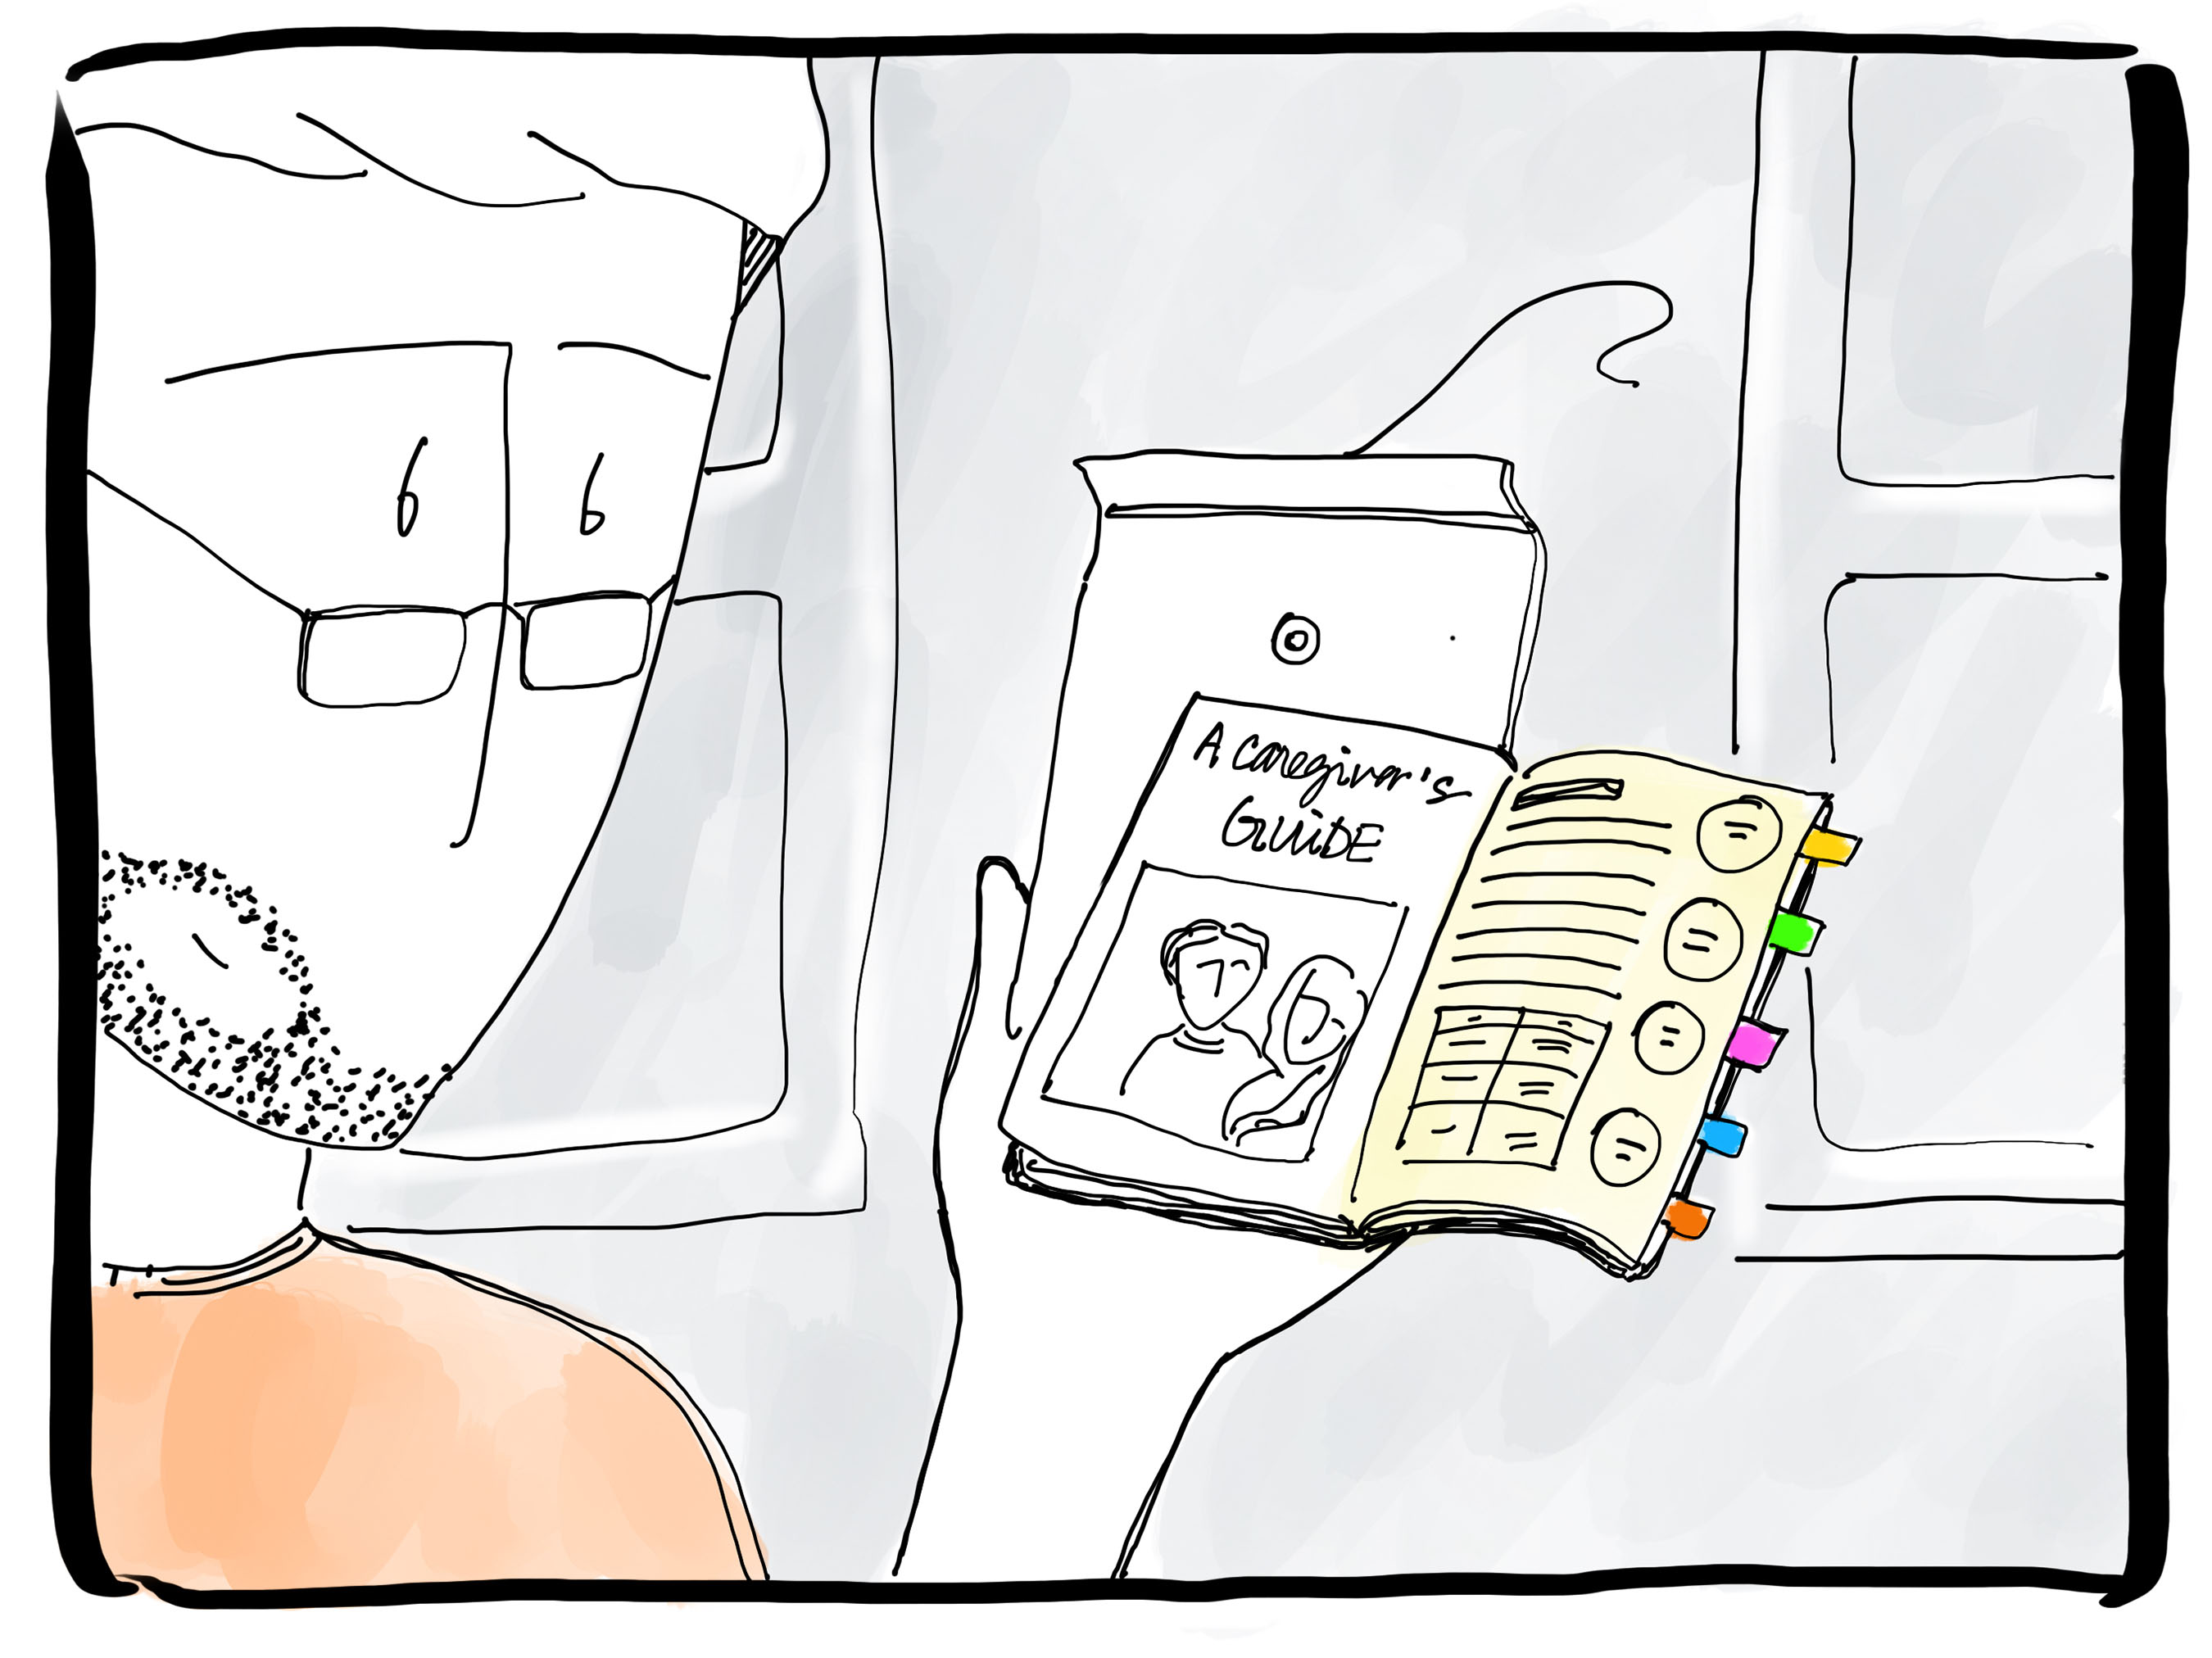 A caregiver's
GUiDE